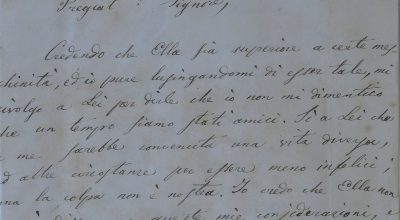 Pregiat. Signore,
Credendo che Ella sia superiore a certe mes
chinità, ed io pure lusingandomi di esser tale, mi
rivolgo a Lei per dirle che io non mi dimentico
che un tempo siamo stati amici. Si a Lei che
a me sarebbe convenuta una vita diversa,
ed altre circostanze per essere meno infelici;
ma la colpa non è nostra. Io credo che Ella non
queste mie considerazioni, e